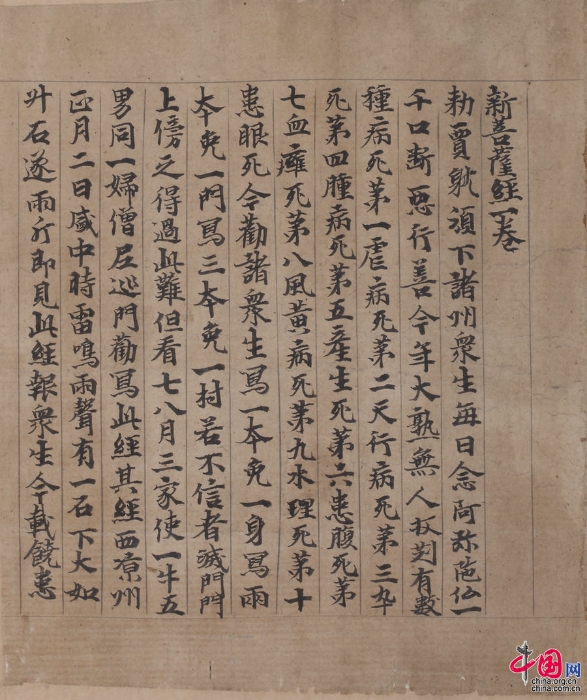 新菩薩經一卷
勑賈躭頒下諸州衆生每日念阿弥陁仏一
千口断惡行善今年大熟無人収刈有數
種病死苐一虐病死苐二天行病死苐三卒
死苐四腫病死苐五産生死苐六患腹死苐
七血癰死苐八風黄病死苐九水理死苐十
患眼死今勸諸衆生寫一夲免一身寫兩
夲免一門寫三夲免一村若不信者滅門門
上傍之得過此難但看七八月三家使一牛五
男同一婦僧尼巡門勸寫此經其經西凉州
正月二日盛中時雷鳴雨聲有一石下大如
升石遂兩片即見此經報衆生今載饒患
中国网
china.org.cn
china.com.cn